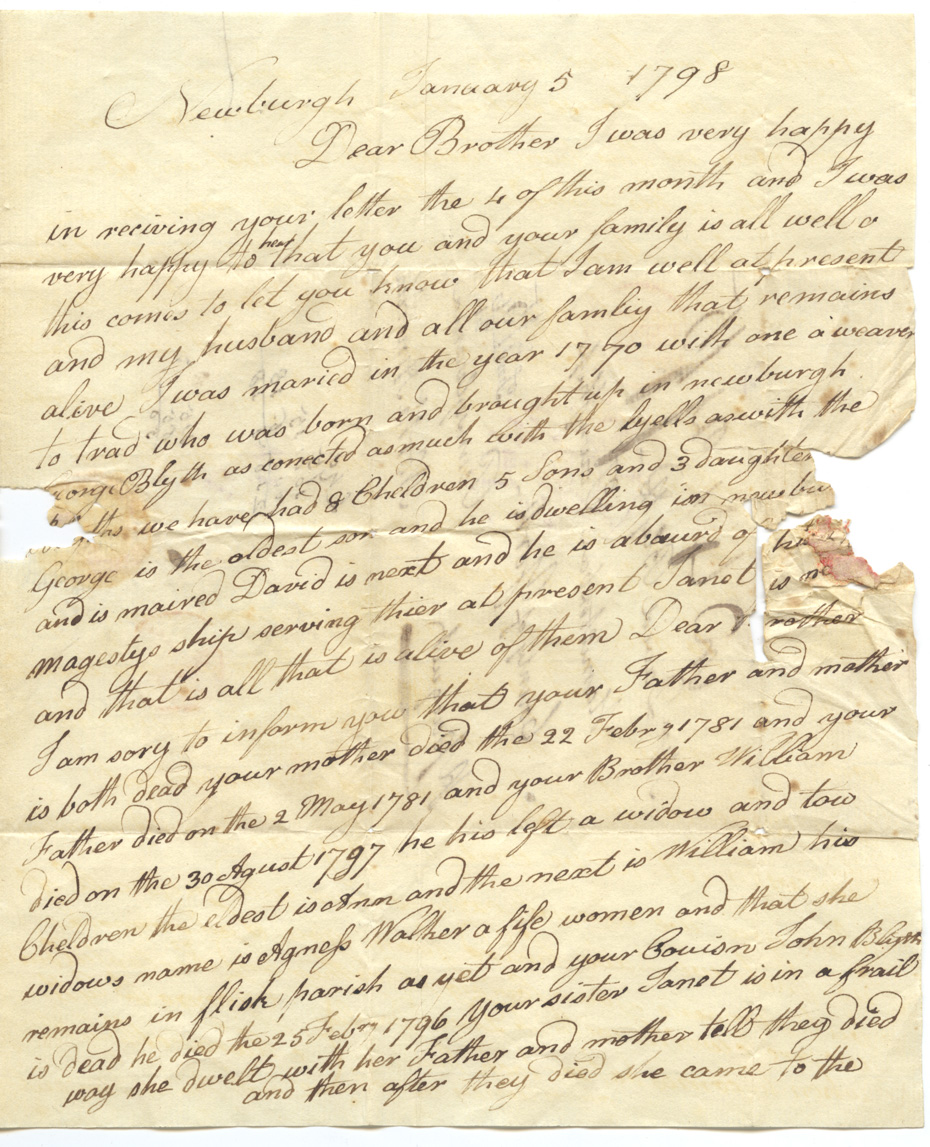 Newburgh January 5 1798
Dear Brother I was very happy
in reciving your letter the 4 of this month and I was
very happy to hear that you and your family is all well o
this comes to let you know that I am well at present
and my husband and all our famliy that remains
alive I was maried in the year 1770 with one a weaver
to trad who was born and brought up in newburgh
George Blyth as conected as much with the lyells as with the
we have had 8 Children 5 Sons and 3 daughter
George is the oldest son and he is dwelling in newbu
and is maired David is next and he is abaurd of
magestys ship serving thier at present Janet is
and that is all that is alive of them Dear rother
I am sory to inform you that your Father and mother
is both dead your mother died the 22 Febry 1781 and your
Father died on the 2 May 1781 and your Brother William
died on the 30 Agust 1797 he his left a widow and tow
Children the eldest is Ann and the next is William his
widows name is Agness Walker a fife women and that she
remains in flisk parish as yet and your Couisn John Blyth
is dead he died the 25 Febry 1796 your sister Janet is in a frail
way she dwelt with her Father and mother tell they died
and then after they died she came to the